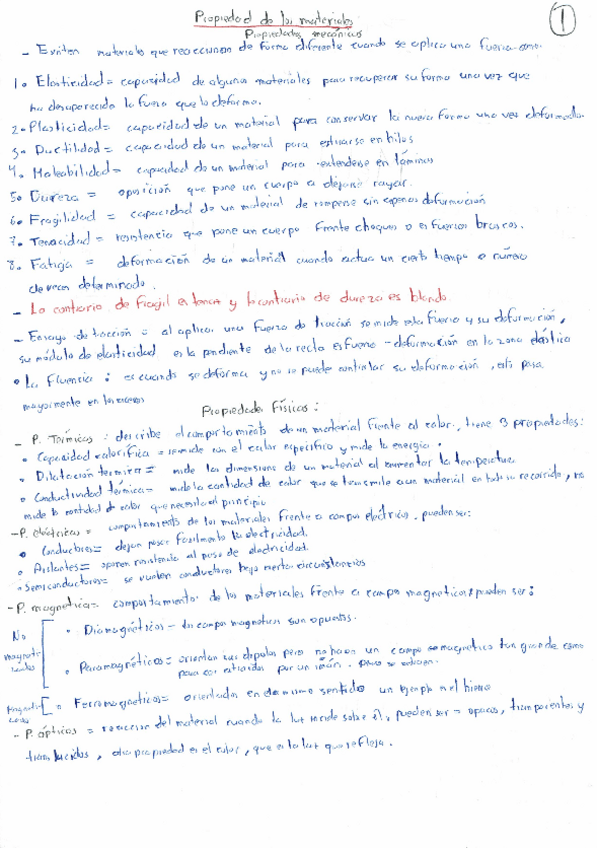 Propiedad de los materiales
1
Propiedades mecánicas
- Existen materiales que reaccionan de forma diferente cuando se aplica una fuerza como:
1. Elasticidad = capacidad de algunos materiales para recuperar su forma una vez que
ha desaparecido la fuerza que lo deformo.
2. Plasticidad = capacidad de un material para conservar la nueva forma una vez deformado
3. Ductilidad = capacidad de un material para estirarse en hilos
4. Maleabilidad = capacidad de un material para extenderse en láminas
5. Dureza = oposición que pone un cuerpo a dejarse rayar.
6. Fragilidad = capacidad de un material de romperse sin apenas deformación
7. Tenacidad = resistencia que pone un cuerpo frente choques o esfuerzos bruscos.
8. Fatiga = deformación de un material cuando actua un cierto tiempo o número
de veces determinado.
- Lo contrario de fragil es tenaz y lo contrario de dureza es blando.
- Ensayo de tracción = al aplicar una fuerza de tracción se mide esta fuerza y su deformación,
su módulo de elasticidad es la pendiente de la recta esfuerzo - deformación en la zona elástica
• La Fluencia: es cuando se deforma y no se puede controlar su deformación, esto pasa
mayormente en los aceros
Propiedades Físicas:
- P. Térmicas: describe el comportamiento de un material frente al calor, tiene 3 propiedades:
• Capacidad calorífica = se mide con el calor especifico y mide la energía.
• Dilatación termica = mide la dimensions de un material al aumentar la temperatura
• Conductividad térmica = mide la cantidad de calor que se transmite a un material en todo su recorrido, no
mide la cantidad de calor que necesita al principio
- P. eléctricas = comportamiento de los materiales frente a campos electricos, pueden ser:
• Conductores = dejan pasar facilmente la electricidad.
• Aislantes = oponen resistencia al paso de electricidad.
• Semiconductores = se vuelven conductores bajo ciertas circunstancias
- P. magnetica = comportamiento de los materiales frente a campos magneticos, pueden ser:
No
• Diamagnéticos - los campos magneticos son opuestos.
• Paramagnéticos = orientan sus dipolos pero no hacen un campo magnetico tan grande como
para ser atraidos por un imán.
• Ferromagneticos = orientados en el mismo sentido un ejemplo es el hierro
- P. ópticas = reaccion del material cuando la luz incide sobre él, pueden ser = opacos, transparentes y
translucidos, otra propiedad es el color, que es la luz que refleja.